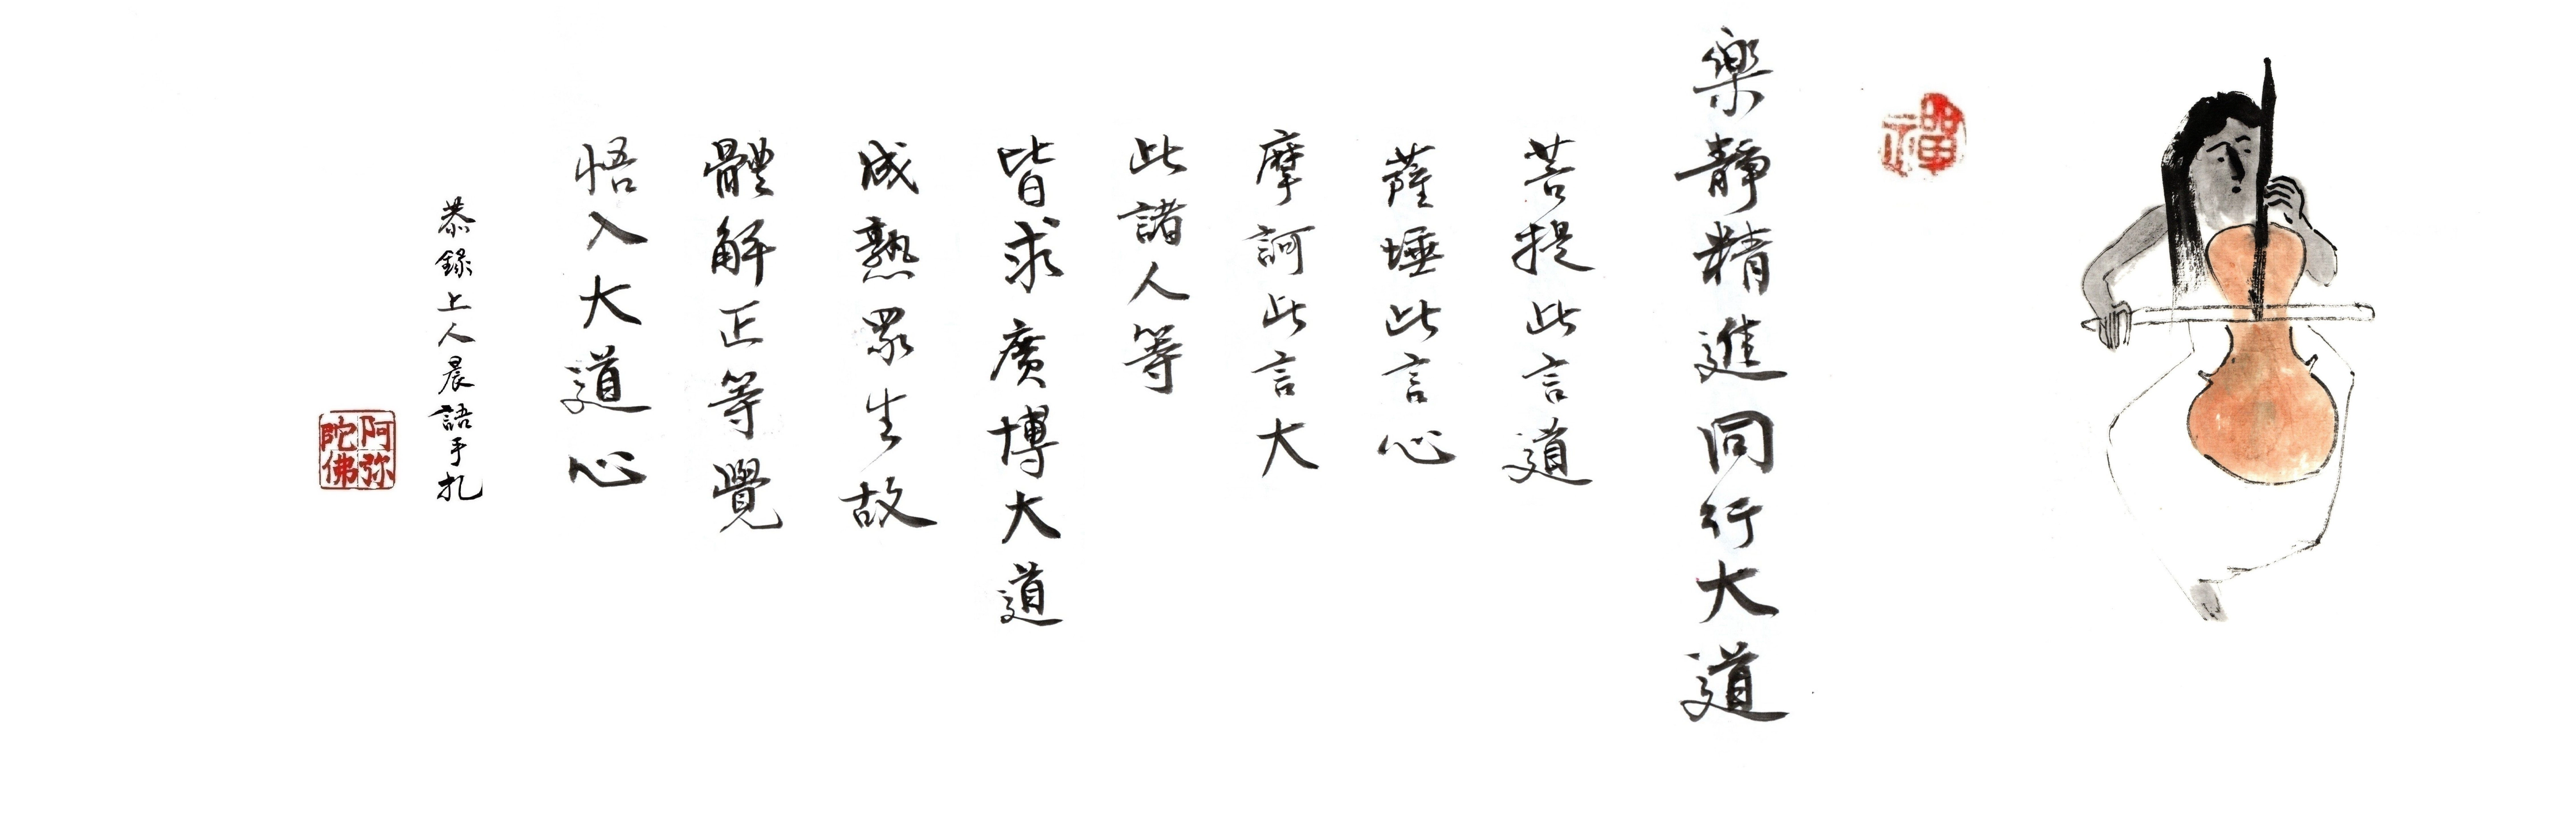 禪
樂靜精進同行大道
菩提此言道
薩埵此言心
摩訶此言大
此諸人等
皆求廣博大道
成熟眾生故
體解正等覺
悟入大道心
恭錄上人晨語手扎
阿弥陀佛